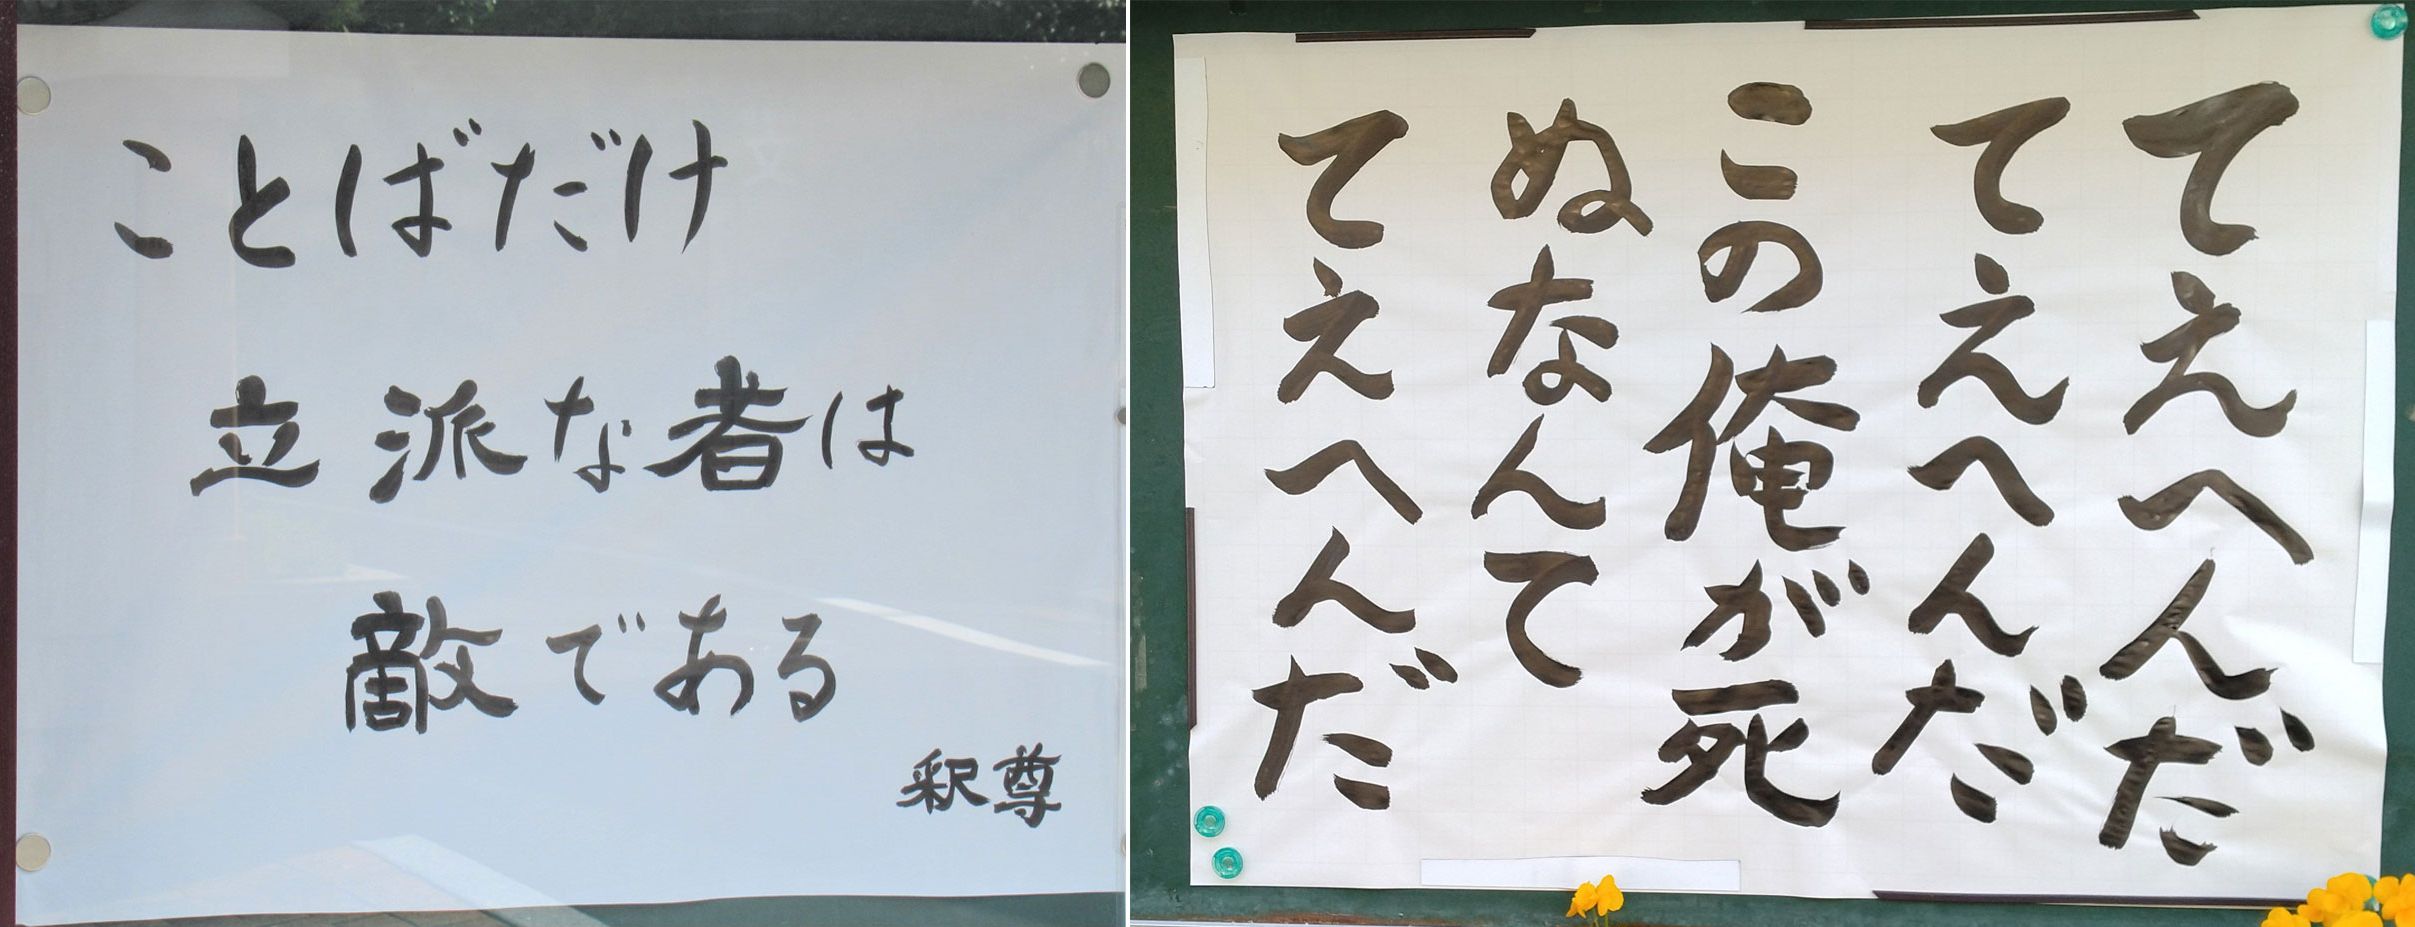 ことばだけ
立派な者は
敵である
釈尊
てえへんだ
てえへんだ
この俺が死
ぬなんて
てえへんだ